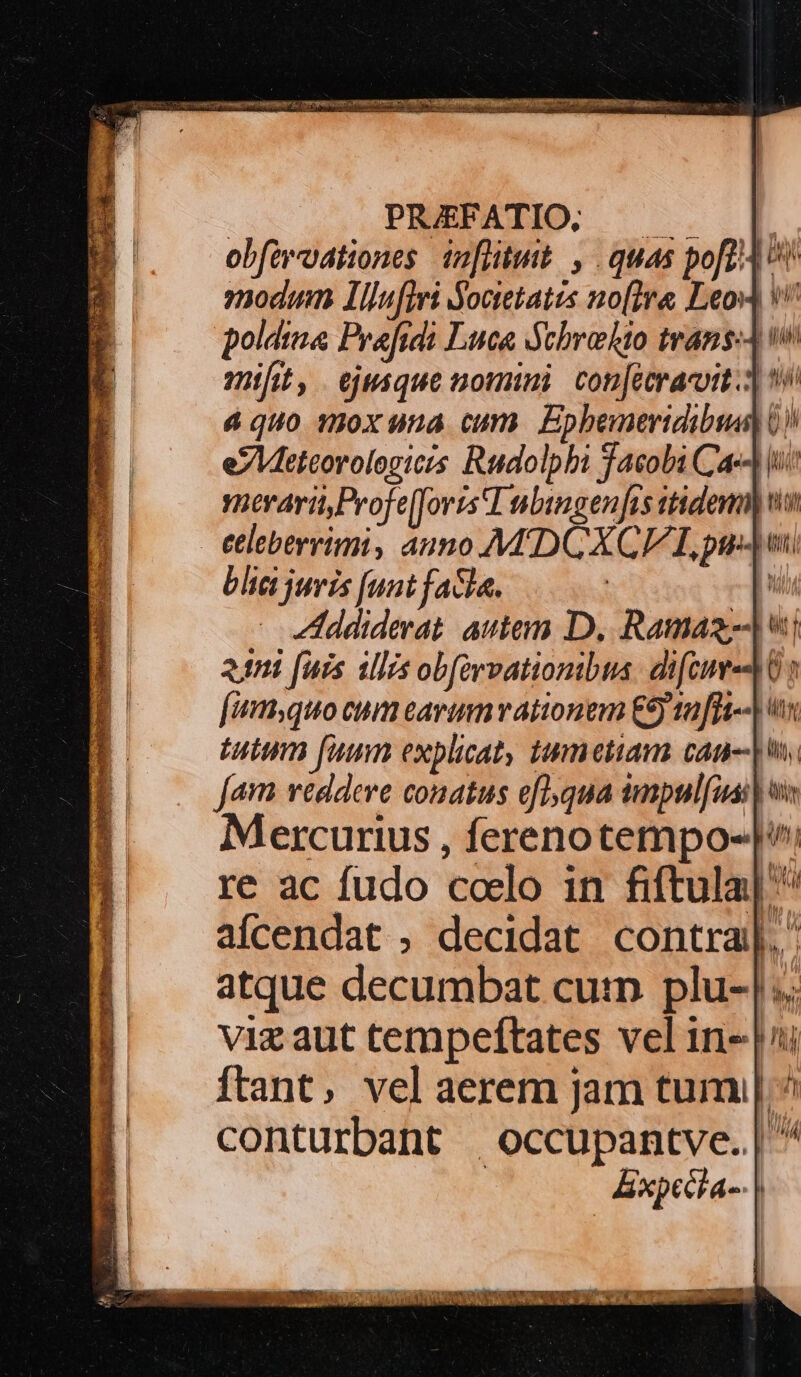 PRÆFATIO;
obſervationes inſtituit, quas poſt
modum Illuſtri Societatis noſtræ Leo-
poldinæ Præſidi Lucæ Schrœkio trans-
miſit, ejusque nomini conſecravit:
à quo mox una cum Ephemeridibus
Meteorologicis Rudolphi Jacobi Ca-
merarii, Profeſſoris Tubingenſis itidem
celeberrimi, anno MDCXCVI, pu-
blici juris ſunt factæ.
Addiderat autem D. Ramaz-
zini ſuis illis obſervationibus diſcur-
ſum, quo cum earum rationem & inſti-
tutum ſuum explicat, tum etiam cau-
ſam reddere conatus eſt, qua impulſus
Mercurius, ſereno tempo-
re ac ſudo cœlo in fiſtula
aſcendat, decidat contra
atque decumbat cum plu-
viæ aut tempeſtates vel in-
ſtant, vel aerem jam tum
conturbant occupantve.
Expecta-